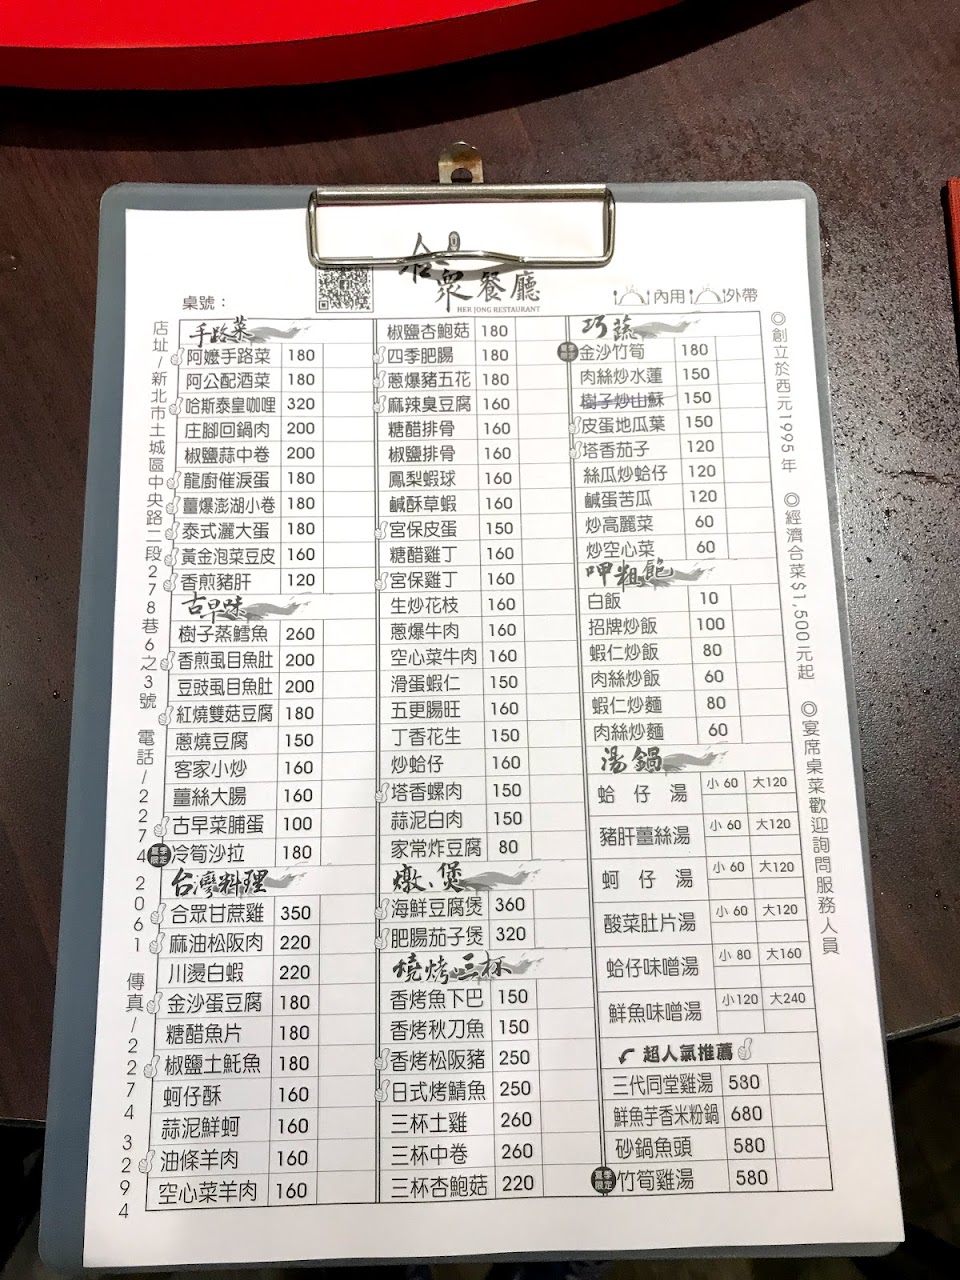 合眾餐廳
HER JONG RESTAURANT
桌號：
內用 外帶
手路菜
阿嬤手路菜 180
阿公配酒菜 180
哈斯泰皇咖哩 320
庄腳回鍋肉 200
椒鹽蒜中卷 200
龍廚催淚蛋 180
薑爆澎湖小卷 180
泰式灑大蛋 180
黃金泡菜豆皮 160
香煎豬肝 120
古早味
樹子蒸鱈魚 260
香煎虱目魚肚 200
豆豉虱目魚肚 200
紅燒雙菇豆腐 180
蔥燒豆腐 150
客家小炒 160
薑絲大腸 160
古早菜脯蛋 100
夏季限定 冷筍沙拉 180
台灣料理
合眾甘蔗雞 350
麻油松阪肉 220
川燙白蝦 220
金沙蛋豆腐 180
糖醋魚片 180
椒鹽土魠魚 180
蚵仔酥 160
蒜泥鮮蚵 160
油條羊肉 160
空心菜羊肉 160
椒鹽杏鮑菇 180
四季肥腸 180
蔥爆豬五花 180
麻辣臭豆腐 160
糖醋排骨 160
椒鹽排骨 160
鳳梨蝦球 160
鹹酥草蝦 160
宮保皮蛋 150
糖醋雞丁 160
宮保雞丁 160
生炒花枝 160
蔥爆牛肉 160
空心菜牛肉 160
滑蛋蝦仁 150
五更腸旺 160
丁香花生 150
炒蛤仔 160
塔香螺肉 150
蒜泥白肉 150
家常炸豆腐 80
燉、煲
海鮮豆腐煲 360
肥腸茄子煲 320
燒烤、三杯
香烤魚下巴 150
香烤秋刀魚 150
香烤松阪豬 250
日式烤鯖魚 250
三杯土雞 260
三杯中卷 260
三杯杏鮑菇 220
巧蔬
金沙竹筍 180
肉絲炒水蓮 150
樹子炒山蘇 150
皮蛋地瓜葉 150
塔香茄子 120
絲瓜炒蛤仔 120
鹹蛋苦瓜 120
炒高麗菜 60
炒空心菜 60
呷粗飽
白飯 10
招牌炒飯 100
蝦仁炒飯 80
肉絲炒飯 60
蝦仁炒麵 80
肉絲炒麵 60
湯鍋
蛤仔湯 小60 大120
豬肝薑絲湯 小60 大120
蚵仔湯 小60 大120
酸菜肚片湯 小60 大120
蛤仔味噌湯 小80 大160
鮮魚味噌湯 小120 大240
超人氣推薦
三代同堂雞湯 580
鮮魚芋香米粉鍋 680
砂鍋魚頭 580
夏季限定 竹筍雞湯 580
店址/新北市土城區中央路二段278巷6之3號 電話/2274 2061 傳真/2274 3294
◎創立於西元1995年 ◎經濟合菜$1,500元起 ◎宴席桌菜歡迎詢問服務人員